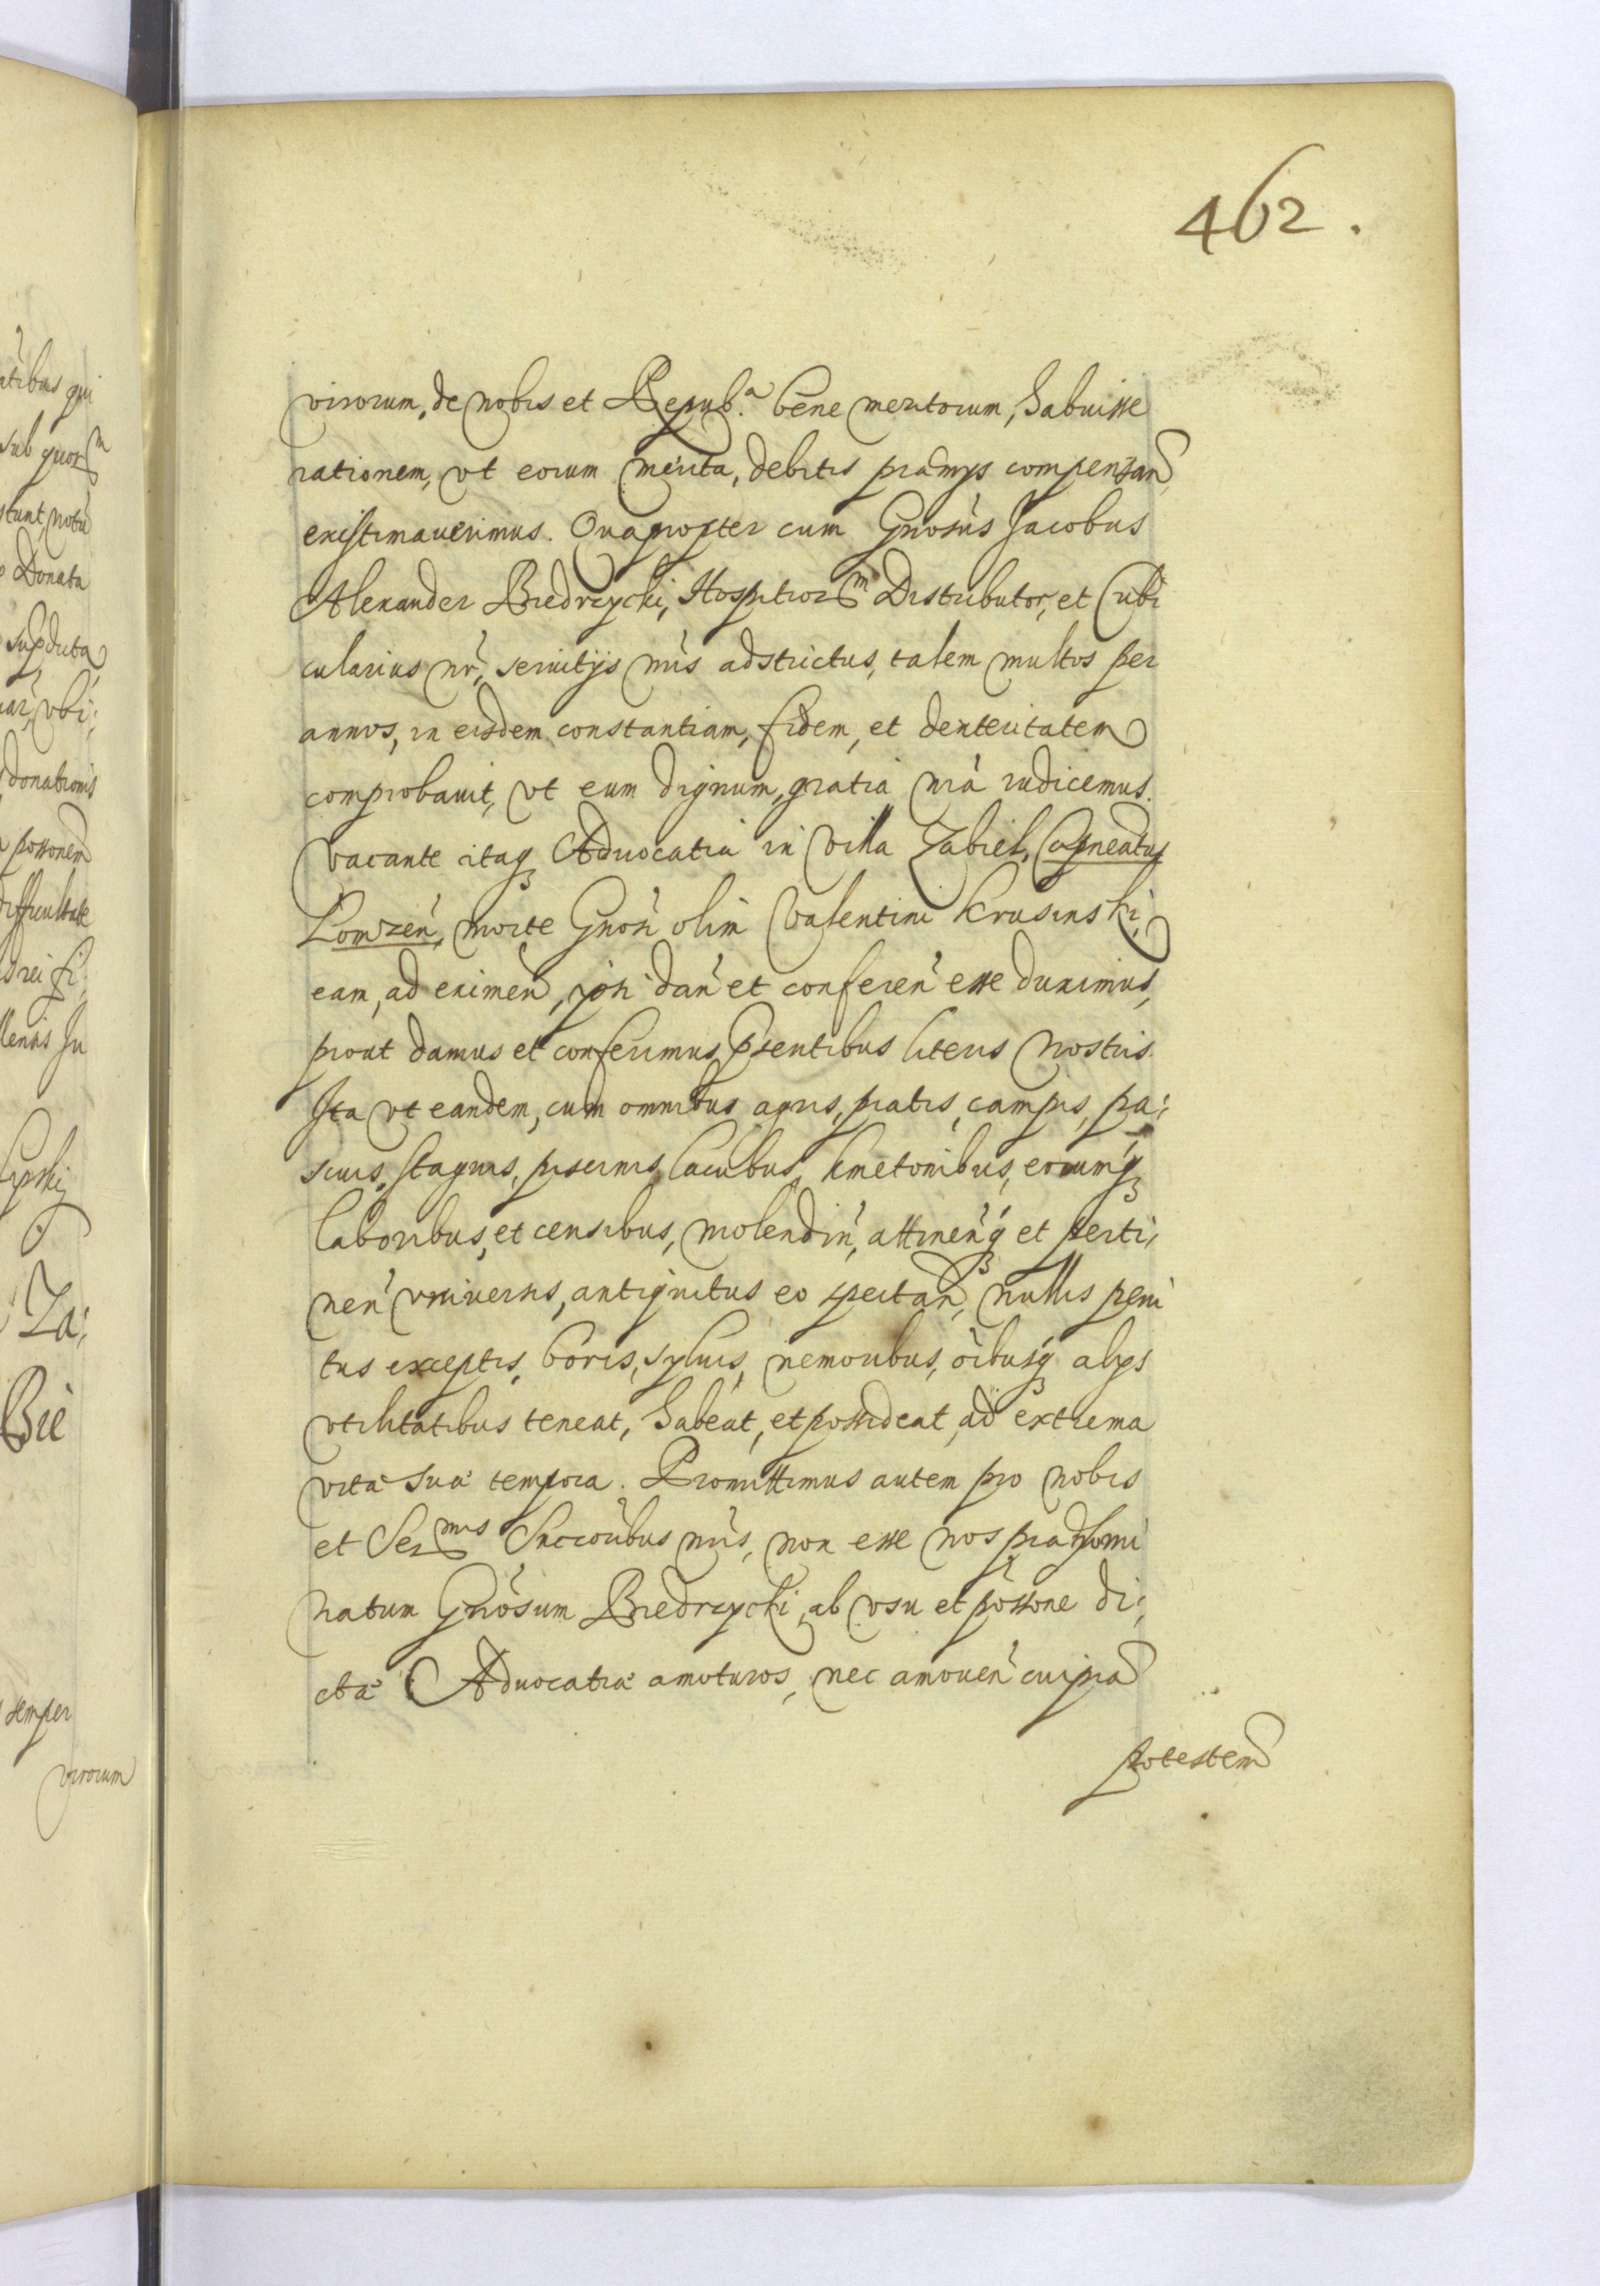 462.
virorum, de nobis et Repub.a bene meritorum, habuisse
rationem, vt eorum merita, debitis præmys compensan
existimauerimus. Quapropter cum Gnosus Jacobus
Alexander Biedrzycki, Hospitiorm Distributor, et Cubi
cularius nr, seruitijs nris adstrictus, talem multos per
annos, in eisdem constantiam, fidem, et dexteritatem
comprobauit, vt eum dignum, gratia nra iudicemus.
Vacante itaq Aduocatia in Villa Zabiel, Capneatus
Lomzen, morte Gnosi olim Valentini Krusinski,
eam, ad eximen, ipsi dan et conferen esse duximus,
prout damus et conferimus pntibus literis nostris.
Ita vt eandem, cum omnibus agris, pratis, campis, pa:
scuis, stagnis, piscinis, lacubus, kmetonibus, eorumq
laboribus, et censibus, molendin, attinenq et perti:
nen vniuersis, antiquitus eo spectan, nullis peni
tus exceptis, boris, syluis, nemoribus, oibusq alys
vtilitatibus teneat, habeat, et possideat, ad extrema
vitæ suæ tempora. Promittimus autem pro nobis
et Sermis Succoribus nris, non esse nos prædnomi
natum Gnosum Biedrzycki, ab vsu et possone di:
ctæ Aduocatiæ amoturos, nec amouen cuipia
potestem
atibus qui
sub quorm
Donata
vbi:
donationis
possonem
difficultate
Za:
Bie
semper
virorum